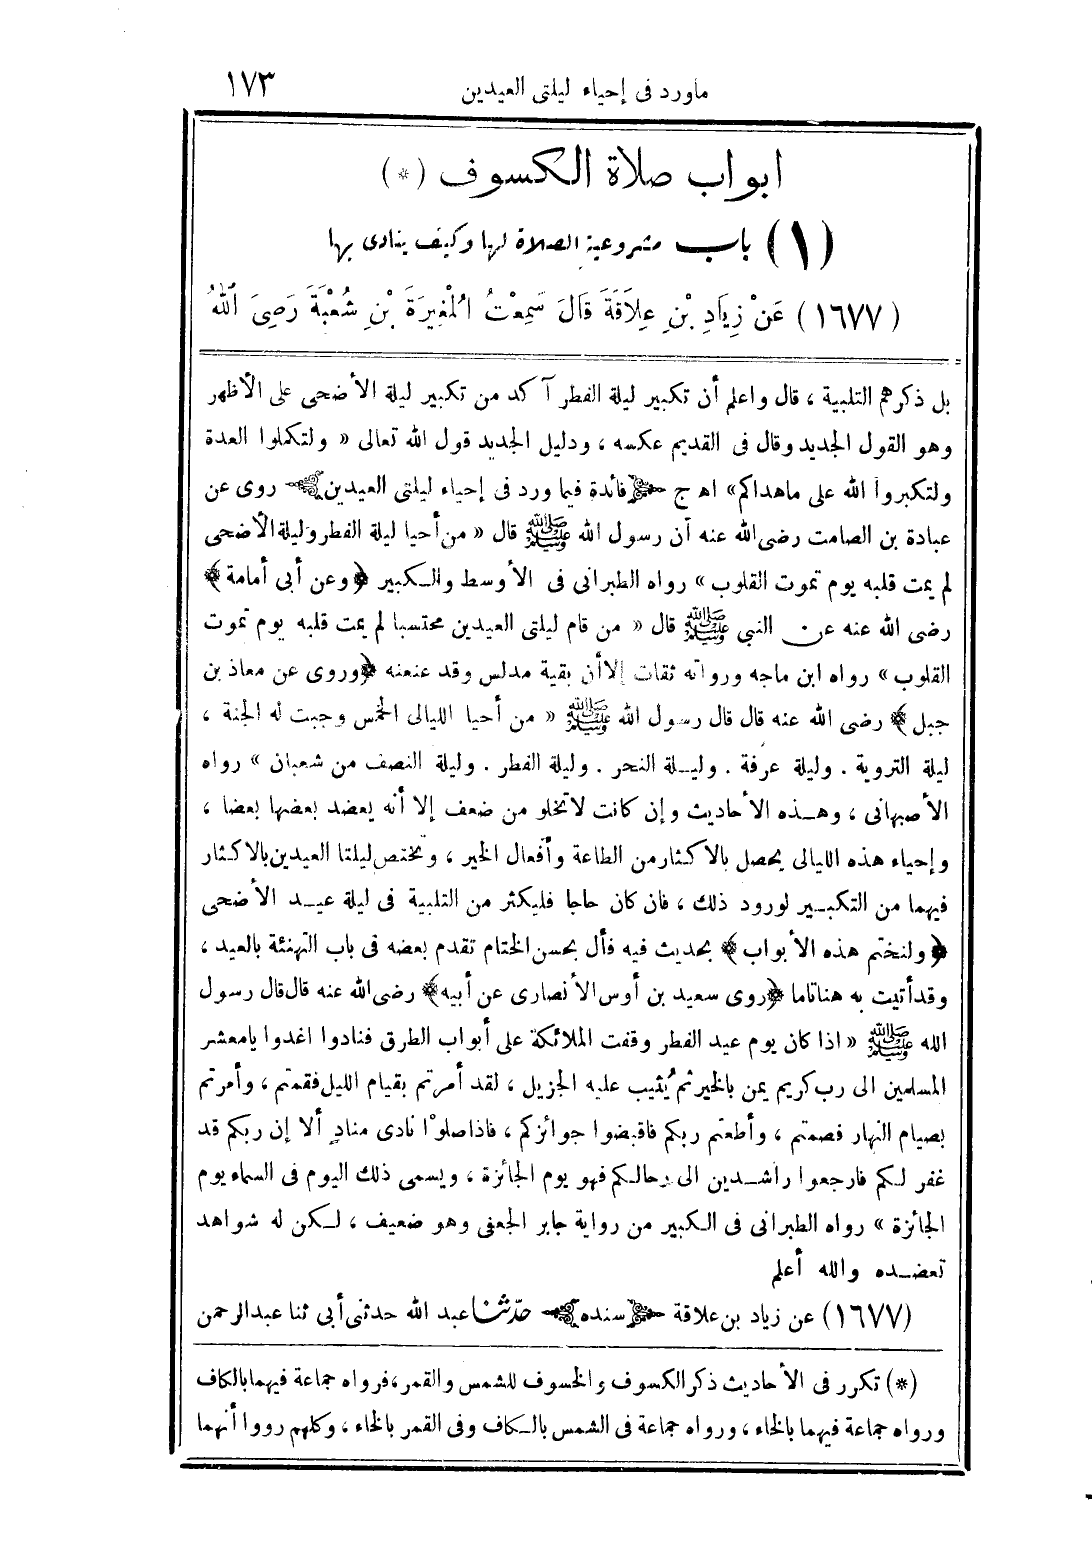 ماورد فى إحياء ليلتى العيدين ١٧٣
ابواب صلاة الكسوف (*)
(١) باب مشروعية الصلاة لها وكيف ينادى بها
(١٦٧٧) عَنْ زِيَادِ بْنِ عِلاَقَةَ قَالَ سَمِعْتُ الْمُغِيرَةَ بْنِ شُعْبَةَ رَضِىَ اللهُ
بل ذكرهم التلبية ، قال واعلم أن تكبير ليلة الفطر آكد من تكبير ليلة الأضحى على الأظهر
وهو القول الجديد وقال فى القديم عكسه ، ودليل الجديد قول الله تعالى « ولتكملوا العدة
ولتكبروا الله على ماهداكم» اهج ﴿فائدة فيما ورد فى إحياء ليلتى العيدين﴾ روى عن
عبادة بن الصامت رضى الله عنه أن رسول الله ﷺ قال « من أحيا ليلة الفطر وليلة الأضحى
لم يمت قلبه يوم تموت القلوب » رواه الطبرانى فى الأوسط والكبير ﴿وعن أبى أمامة﴾
رضى الله عنه عن النبي ﷺ قال « من قام ليلتى العيدين محتسبا لم يمت قلبه يوم تموت
القلوب » رواه ابن ماجه ورواته ثقات إلا أن بقية مدلس وقد عنعنه ﴿وروى عن معاذ بن
جبل﴾ رضى الله عنه قال قال رسول الله ﷺ « من أحيا الليالى الخمس وجبت له الجنة ،
ليلة التروية . وليلة عرفة . وليلة النحر . وليلة الفطر . وليلة النصف من شعبان » رواه
الأصبهانى ، وهذه الأحاديث وإن كانت لاتخلو من ضعف إلا أنه يعضد بعضها بعضا ،
وإحياء هذه الليالى يحصل بالاكثار من الطاعة وأفعال الخير ، وتختص ليلتا العيدين بالاكثار
فيهما من التكبير لورود ذلك ، فان كان حاجا فليكثر من التلبية فى ليلة عيد الأضحى
﴿ولنختم هذه الأبواب﴾ بحديث فيه فأل بحسن الختام تقدم بعضه فى باب التهنئة بالعيد ،
وقد أتيت به هنا تاما ﴿روى سعيد بن أوس الأنصارى عن أبيه﴾ رضى الله عنه قال قال رسول
الله ﷺ « اذا كان يوم عيد الفطر وقفت الملائكة على أبواب الطرق فنادوا اغدوا يامعشر
المسلمين الى رب كريم يمن بالخير ثم يُثيب عليه الجزيل ، لقد أمرتم بقيام الليل فقمتم ، وأمرتم
بصيام النهار فصمتم ، وأطعتم ربكم فاقبضوا جوائزكم ، فاذا صلوْا نادى منادٍ ألا إن ربكم قد
غفر لكم فارجعوا راشدين الى رحالكم فهو يوم الجائزة ، ويسمى ذلك اليوم فى السماء يوم
الجائزة » رواه الطبرانى فى الكبير من رواية جابر الجعفى وهو ضعيف ، لكن له شواهد
تعضده والله أعلم
(١٦٧٧) عن زياد بن علاقة ﴿سنده﴾ حدّثنا عبد الله حدثنى أبى ثنا عبد الرحمن
(*) تكرر فى الأحاديث ذكر الكسوف والخسوف للشمس والقمر، فرواه جماعة فيهما بالكاف
ورواه جماعة فيهما بالخاء ، ورواه جماعة فى الشمس بالكاف وفى القمر بالخاء ، وكلهم رووا أنهما